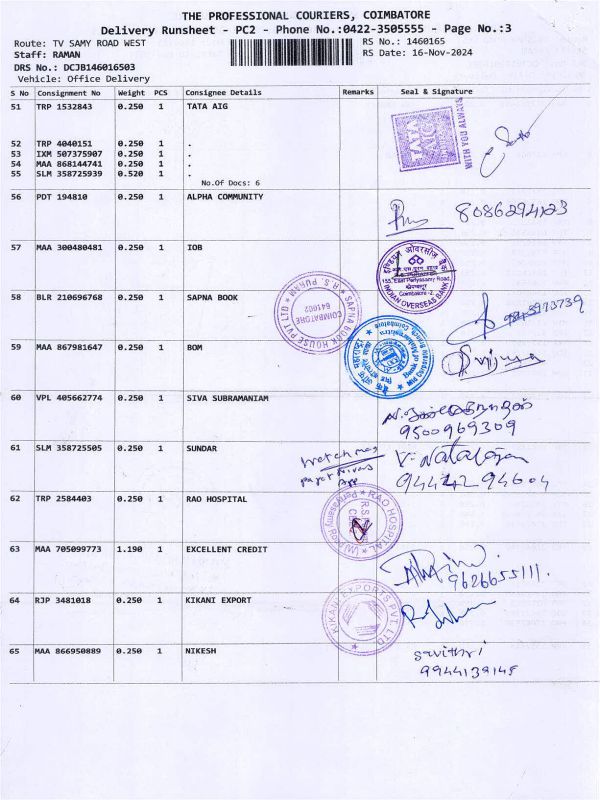 THE PROFESSIONAL COURIERS, COIMBATORE
Delivery Runsheet - PC2 - Phone No.:0422-3505555 - Page No.:3
Route: TV SAMY ROAD WEST RS No.: 1460165
Staff: RAMAN RS Date: 16-Nov-2024
DRS No.: DCJB146016503
Vehicle: Office Delivery
S No Consignment No Weight PCS Consignee Details Remarks Seal & Signature
51 TRP 1532843 0.250 1 TATA AIG
TATA AIG WITH YOU ALWAYS
52 TRP 4040151 0.250 1 .
53 IXM 507375907 0.250 1 .
54 MAA 868144741 0.250 1 .
55 SLM 358725939 0.520 1 .
No.Of Docs: 6
56 PDT 194810 0.250 1 ALPHA COMMUNITY 8086294123
57 MAA 300480481 0.250 1 IOB
155, East Periyasamy Road,
Coimbatore-2.
INDIAN OVERSEAS BANK
58 BLR 210696768 0.250 1 SAPNA BOOK
SAPNA BOOK HOUSE PVT LTD R.S. PURAM
COIMBATORE
641002
59 MAA 867981647 0.250 1 BOM
Bank of Maharashtra
60 VPL 405662774 0.250 1 SIVA SUBRAMANIAM
9500969309
61 SLM 358725505 0.250 1 SUNDAR
watch man V. Natarajan
62 TRP 2584403 0.250 1 RAO HOSPITAL
RAO HOSPITAL
63 MAA 705099773 1.190 1 EXCELLENT CREDIT
9626655111.
64 RJP 3481018 0.250 1 KIKANI EXPORT
KIKANI EXPORTS PVT. LTD
65 MAA 866950889 0.250 1 NIKESH
savithri
9944139145